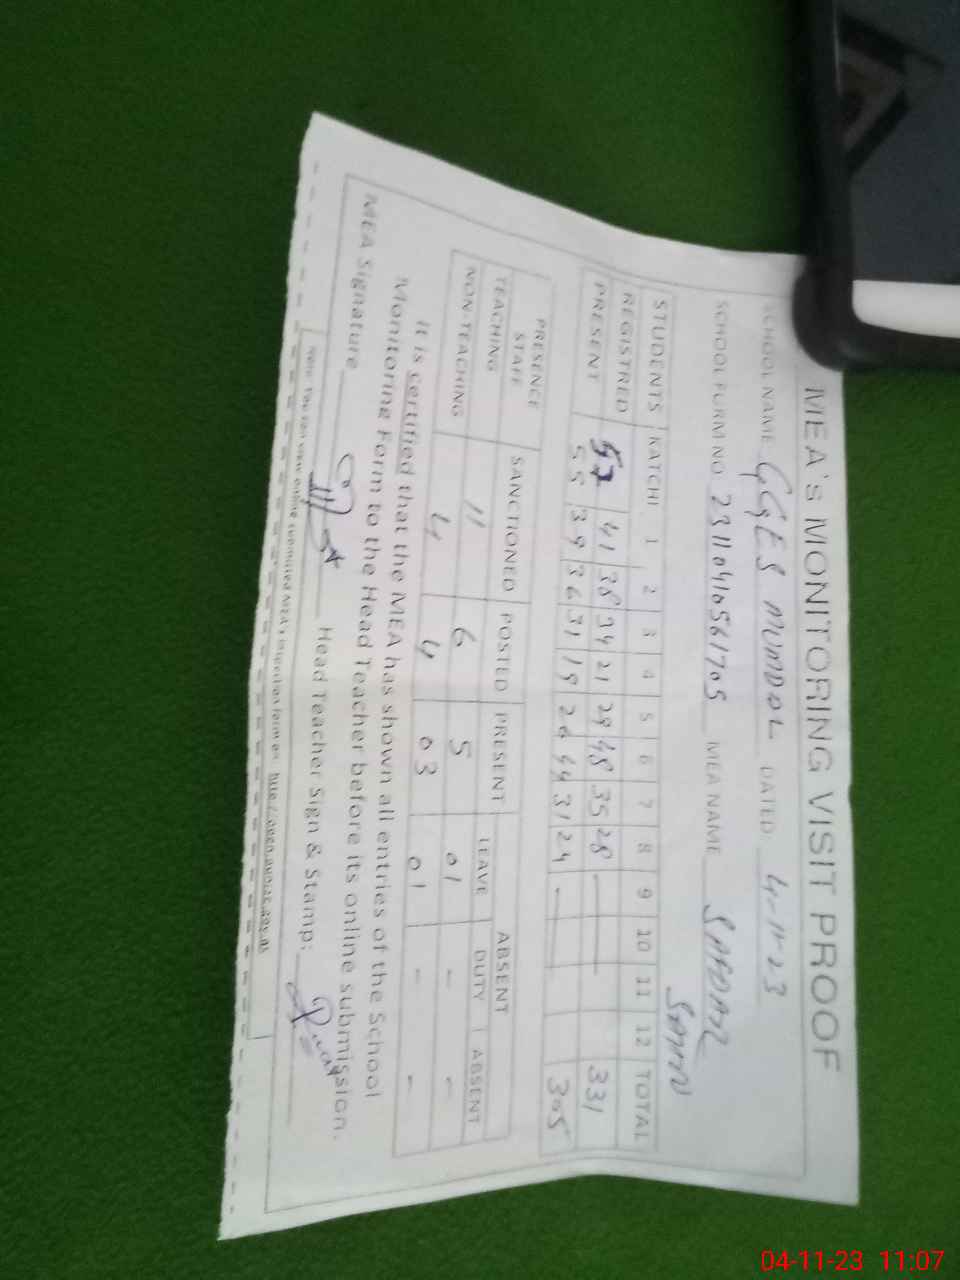 MEA'S MONITORING VISIT PROOF
SCHOOL NAME GGES MUNDOL DATED: 4-11-23
SCHOOL FORM NO 2311040561705 MEA NAME SAFDAR
STUDENTS KATCHI 1 2 3 4 5 6 7 8 9 10 11 12 TOTAL
REGISTRED 57 41 38 34 21 29 48 35 28 — — 331
PRESENT 55 39 36 31 19 26 44 31 24 — 305
PRESENCE STAFF SANCTIONED POSTED PRESENT ABSENT
LEAVE DUTY ABSENT
TEACHING 11 6 5 01 - -
NON-TEACHING 4 4 03 01 - -
It is certified that the MEA has shown all entries of the School
Monitoring Form to the Head Teacher before its online submission.
MEA Signature Head Teacher Sign & Stamp:
Note: You can view online submitted MEA's inspection form on
04-11-23 11:07